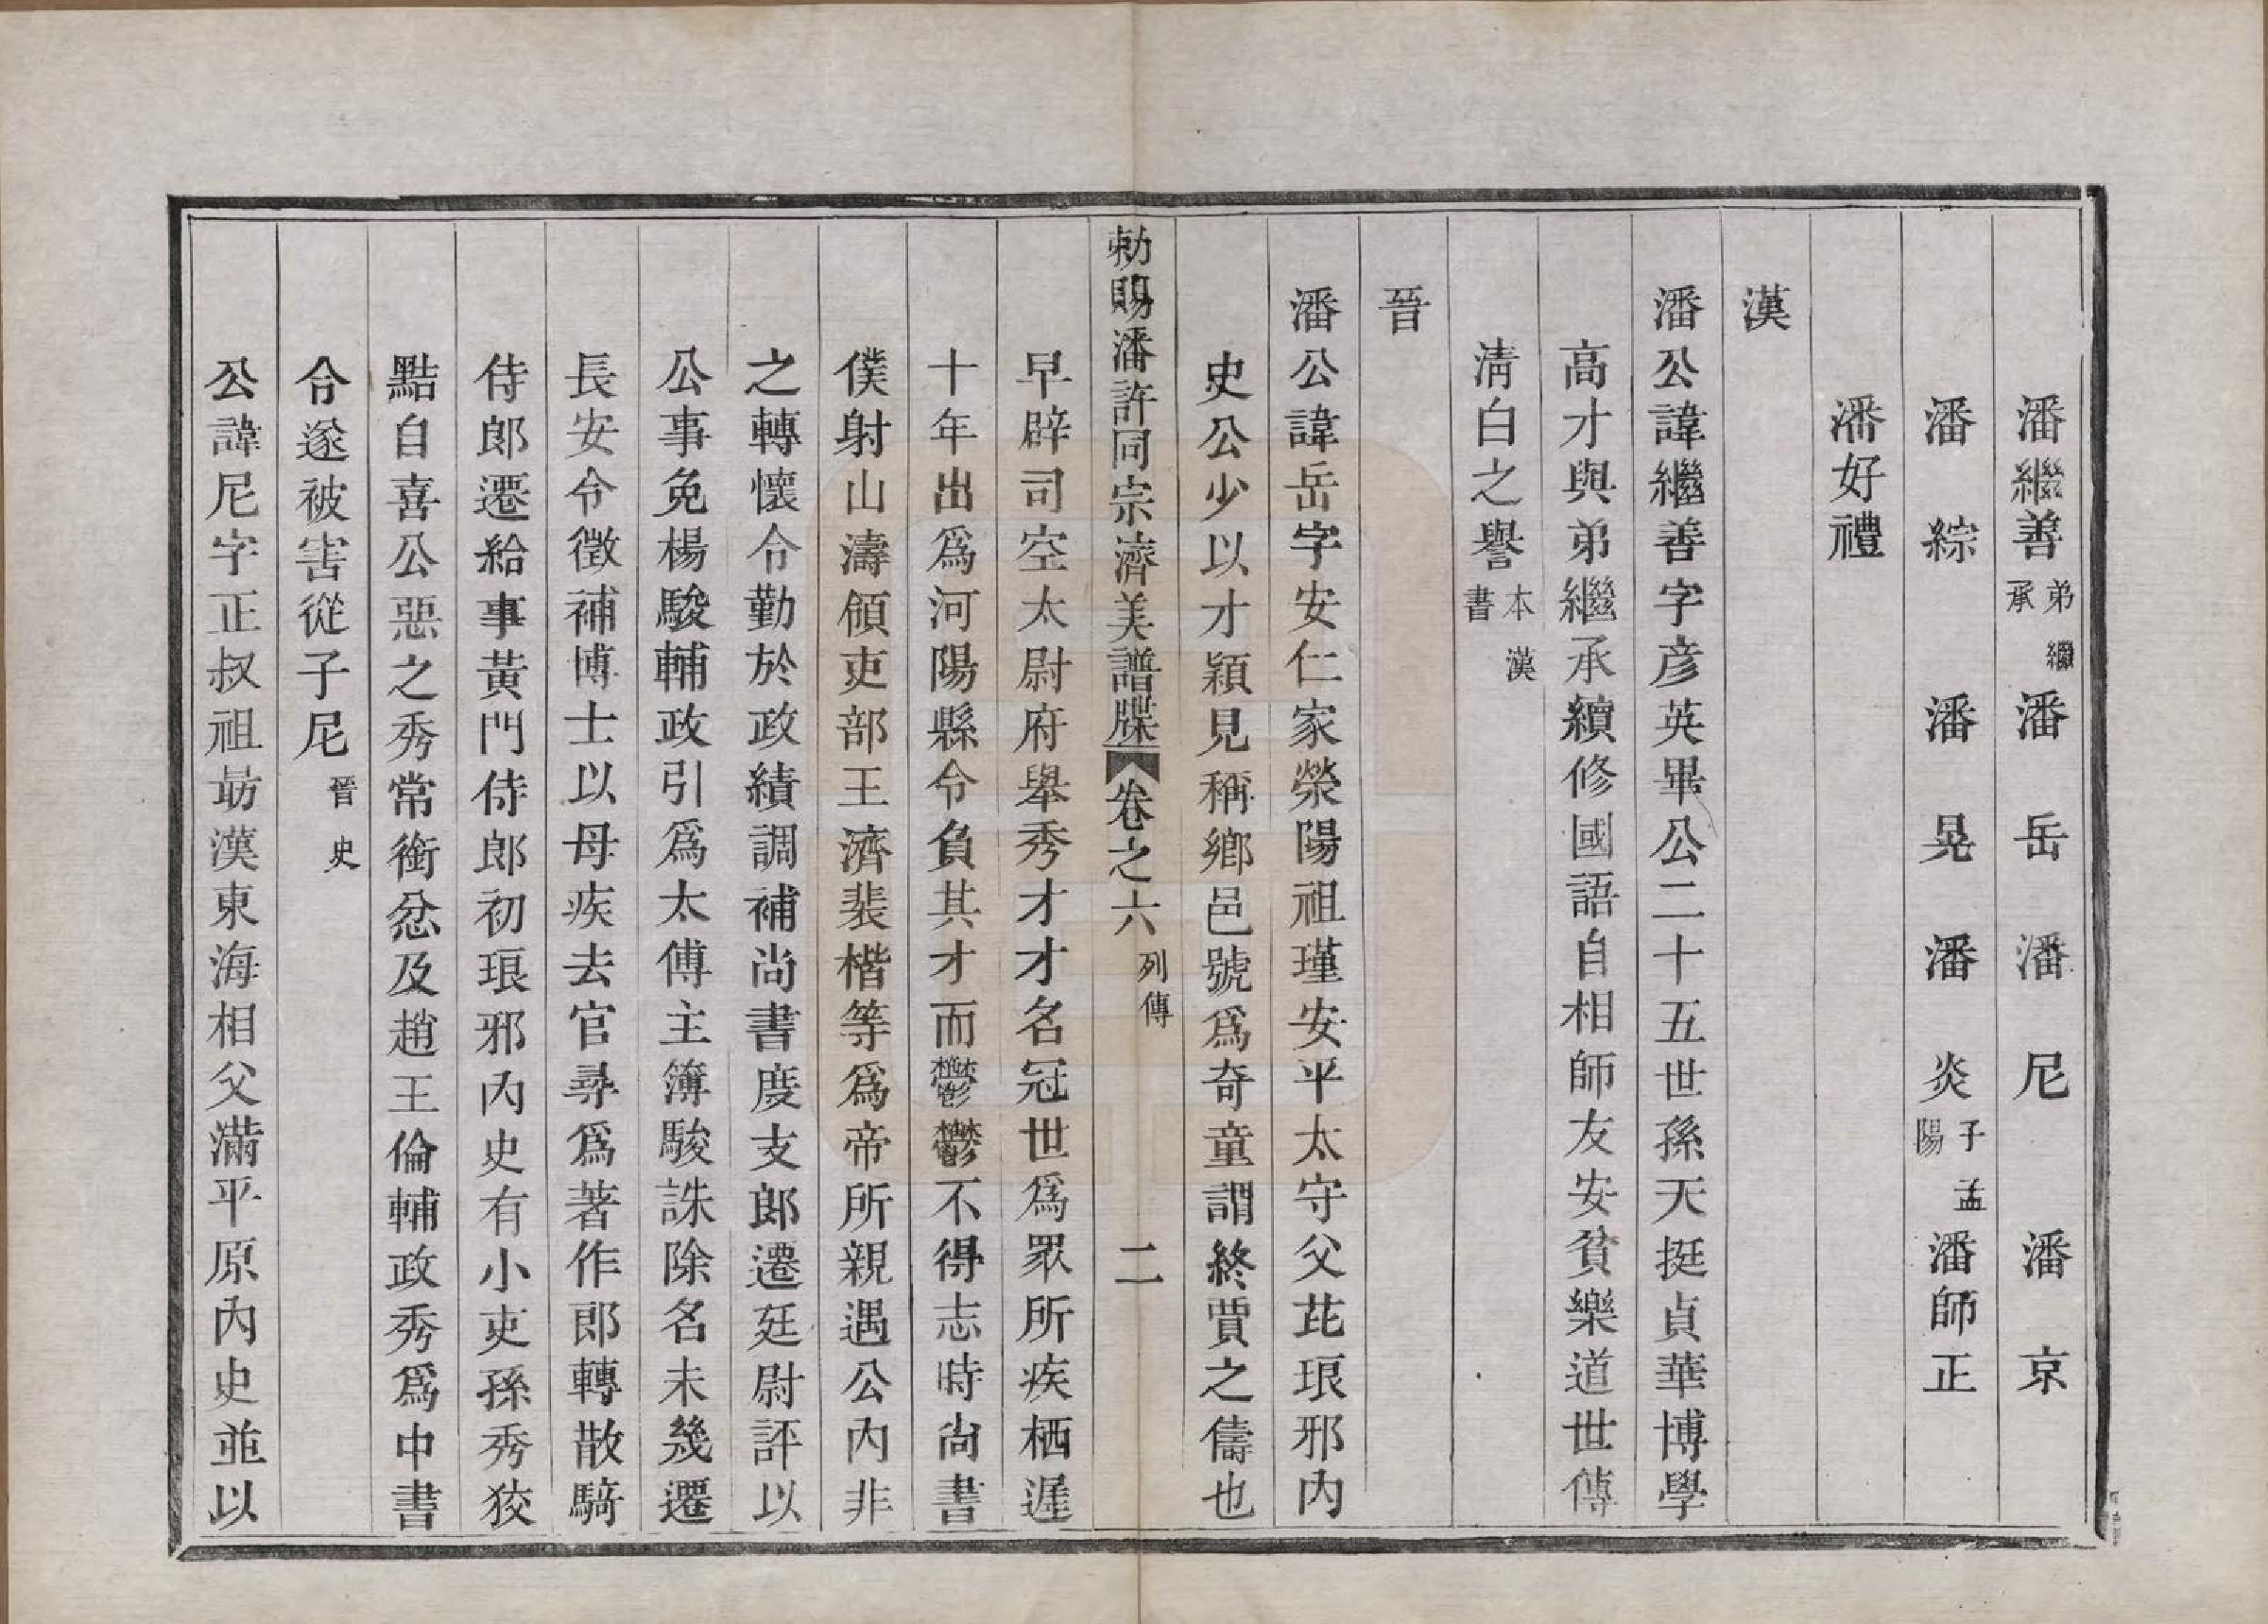 潘繼善弟繼承 潘岳 潘尼 潘京
潘綜 潘晃 潘炎子孟陽 潘師正
潘好禮
漢
潘公諱繼善字彦英畢公二十五世孫天挺貞華博學
高才與弟繼承續修國語自相師友安貧樂道世傳
淸白之譽本漢書
晉
潘公諱岳字安仁家榮陽祖瑾安平太守父芘琅邪內
史公少以才穎見稱鄉邑號爲奇童謂終賈之儔也
勅賜潘許同宗濟美譜牒 卷之六 列傳 二
早辟司空太尉府舉秀才才名冠世爲眾所疾栖遲
十年出爲河陽縣令負其才而鬱鬱不得志時尚書
僕射山濤領吏部王濟裴楷等爲帝所親遇公內非
之轉懷令勤於政績調補尚書度支郎遷廷尉評以
公事免楊駿輔政引爲太傅主簿駿誅除名未幾遷
長安令徵補博士以母疾去官尋爲著作郎轉散騎
侍郎遷給事黃門侍郎初琅邪內史有小吏孫秀狡
黠自喜公惡之秀常銜忿及趙王倫輔政秀爲中書
令遂被害從子尼晉史
公諱尼字正叔祖勗漢東海相父滿平原內史並以